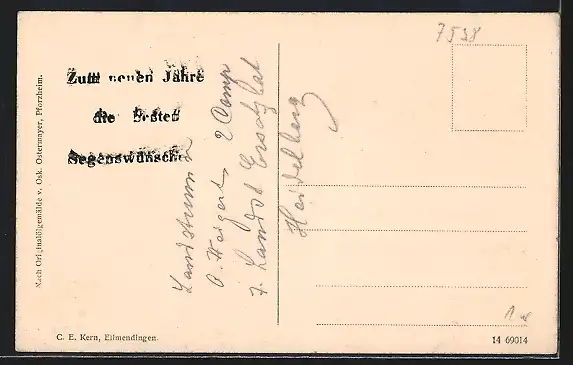 7538
Nach Originalölgemälde v. Osk. Ostermayer, Pforzheim.
Zum neuen Jahre
die besten
Segenswünsche
Landsturm
2 Comp
7. Landst Ersatzbat
Heidelberg
C. E. Kern, Eilmendingen.
14 69014